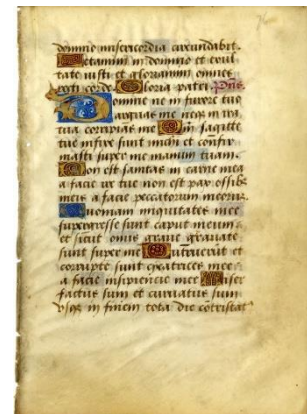 domino misericordia circundabit.
Letamini in domino et exul
tate iusti et gloriamini omnes
recti corde. Gloria patri. Ps̄us.
Domine ne in furore tuo
arguas me neqꝫ in ira
tua corripias me Qm̄ sagitte
tue infixe sunt michi et confir
masti super me manum tuam.
Non est sanitas in carne mea
a facie ire tue non est pax ossibꝫ
meis a facie peccatorum meorum
Quoniam iniquitates mee
supergresse sunt caput meum
et sicut onus graue grauate
sunt super me Putruerunt et
corrupte sunt cicatrices mee
a facie insipiencie mee Miser
factus sum et curuatus sum
vsqꝫ in finem tota die cōtristat